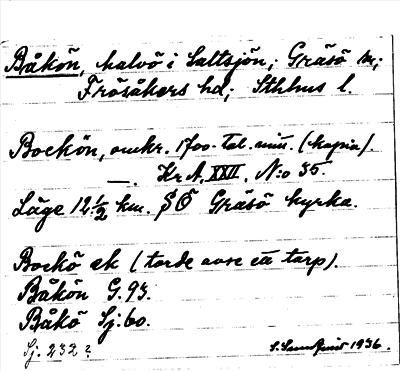 Båkön, halvö i Saltsjön; Gräsö sn;
Frösåkers hd; Sthlms l.
Bockön, omkr. 1700-tal. min. (kopia).
—. Kr.A. XXII. N:o 35.
Läge 12 1/2 km. SÖ Gräsö kyrka.
Bockö ek (torde avse ett torp).
Båkön G. 93.
Båkö Sj: 60.
Sj. 232?
1936.